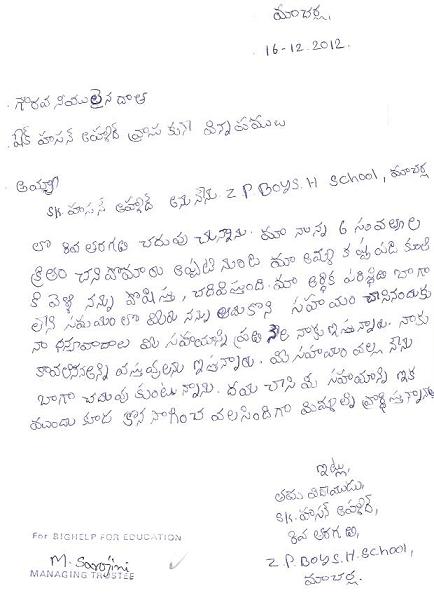 మాచర్ల,
16-12-2012.
గౌరవ నీయులైన దాత
షేక్ హసన్ అహ్మద్ వ్రాసుకునే విన్నపములు
అయ్యా
Sk. హసన్ అహ్మద్ అను నేను Z P BOYS. H School, మాచర్ల
లో 8వ తరగతి చదువు చున్నాను. మా నాన్న 6 సంవత్సరాల
క్రితం చనిపోయారు అప్పటి నుండి మా అమ్మ కష్టపడి కూలి
కి వెళ్లి నన్ను పోషిస్తూ, చదివిస్తుంది. మా ఆర్థిక పరిస్థితి బాగా
లేని సమయంలో మీరు నన్ను ఆదుకొని సహాయం చేసినందుకు
నా ధన్యవాదాలు మీ సహాయాన్ని ప్రతి నెల నాకు ఇస్తున్నారు. నాకు
కావలసినఅన్ని వస్తువులను ఇస్తున్నారు. మీ సహాయం వల్ల నేను
బాగా చదువు కుంటున్నాను. దయ చేసి మీ సహాయాన్ని ఇక
ముందు కూడ కొన సాగించ వలసిందిగా మిమ్మల్ని ప్రార్థిస్తున్నాను
ఇట్లు,
తమ విధేయుడు,
Sk. హసన్ అహ్మద్,
8వ తరగతి,
Z. P. BOYS. H. School,
మాచర్ల.
For BIGHELP FOR EDUCATION
M. Sarojini
MANAGING TRUSTEE